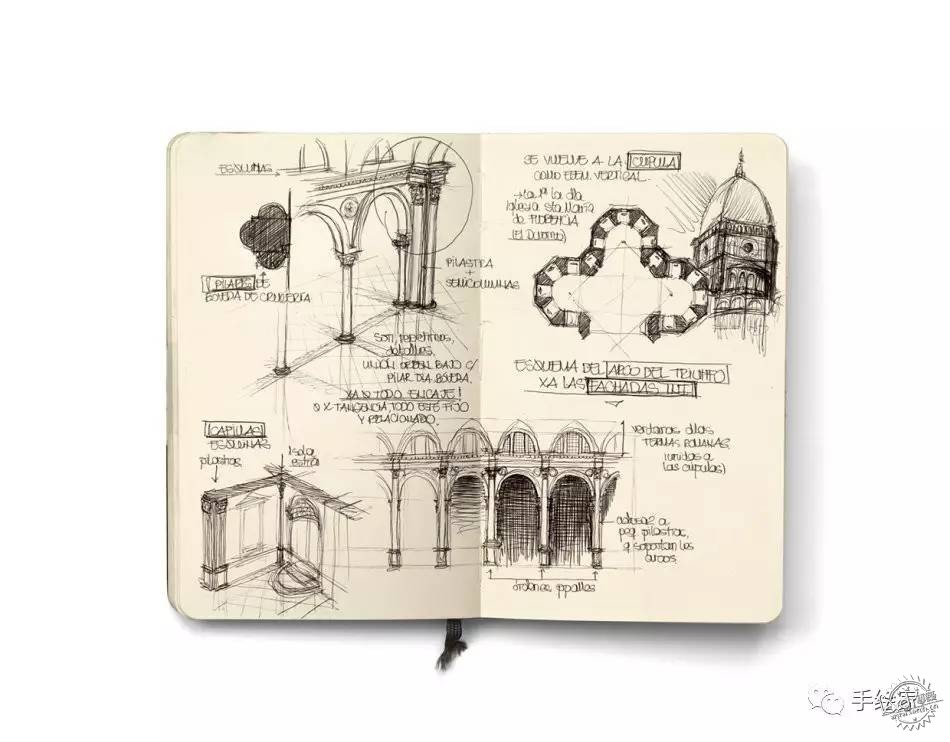 ESQUINAS
PILARES DE
BÓVEDA DE CRUCERÍA
PILASTRA
+
SEMICOLUMNAS
SON
detalles.
UNIÓN ORDEN BAJO C/
PILAR D LA BÓVEDA.
XA Q TODO ENCAJE!
O X TANGENCIA, TODO ESTÉ FIJO
Y RELACIONADO.
CAPILLAS
ESQUINAS
pilastras
SE VUELVE A LA CÚPULA
COMO ELEM. VERTICAL.
iglesia Sta María
de FLORENCIA
(El Duomo)
ESQUEMA DEL ARCO DEL TRIUNFO
XA LAS FACHADAS INT.
TERMAS ROMANAS
(unidas a
las cúpulas)
adosar a
peq. pilastras,
q soportan los
arcos.
órdenes ppales
手绘家